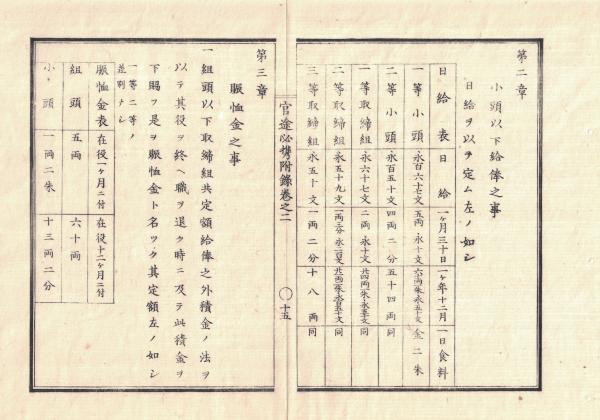 第二章
小頭以下給俸之事
日給ヲ以テ定ム左ノ如シ
日給表 日給 一ヶ月三十日 一ヶ年十二月 一日食料
一等小頭 永百六十七文 五両永十文 六両朱永五十文 金二朱
二等小頭 永百五十文 四両二分 五十四両 同
一等取締組 永六十七文 二両永十文 廿四両朱永文 同
二等取締組 永五十九文 同
三等取締組 永五十文 一両二分 十八両 同
官途必携附録巻之二 〇十五
第三章
賑恤金之事
一組頭以下取締組共定額給俸之外積金ノ法ヲ
以テ其役ヲ終ヘ職ヲ退ク時ニ及テ此積金ヲ
下賜フ是ヲ賑恤金ト名ツク其定額左ノ如シ
一等二等ノ
差別ナシ
賑恤金表 在役一ヶ月ニ付 在役十二ヶ月ニ付
組頭 五両 六十両
小頭 一両二朱 十三両二分